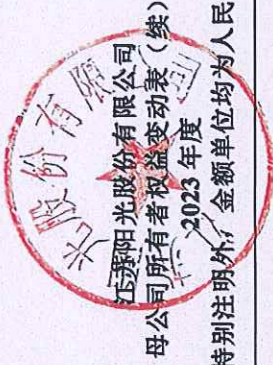 江苏阳光股份有限公司
母公司所有者权益变动表（续）
2023 年度
特别注明外，金额单位均为人民
光股份有限